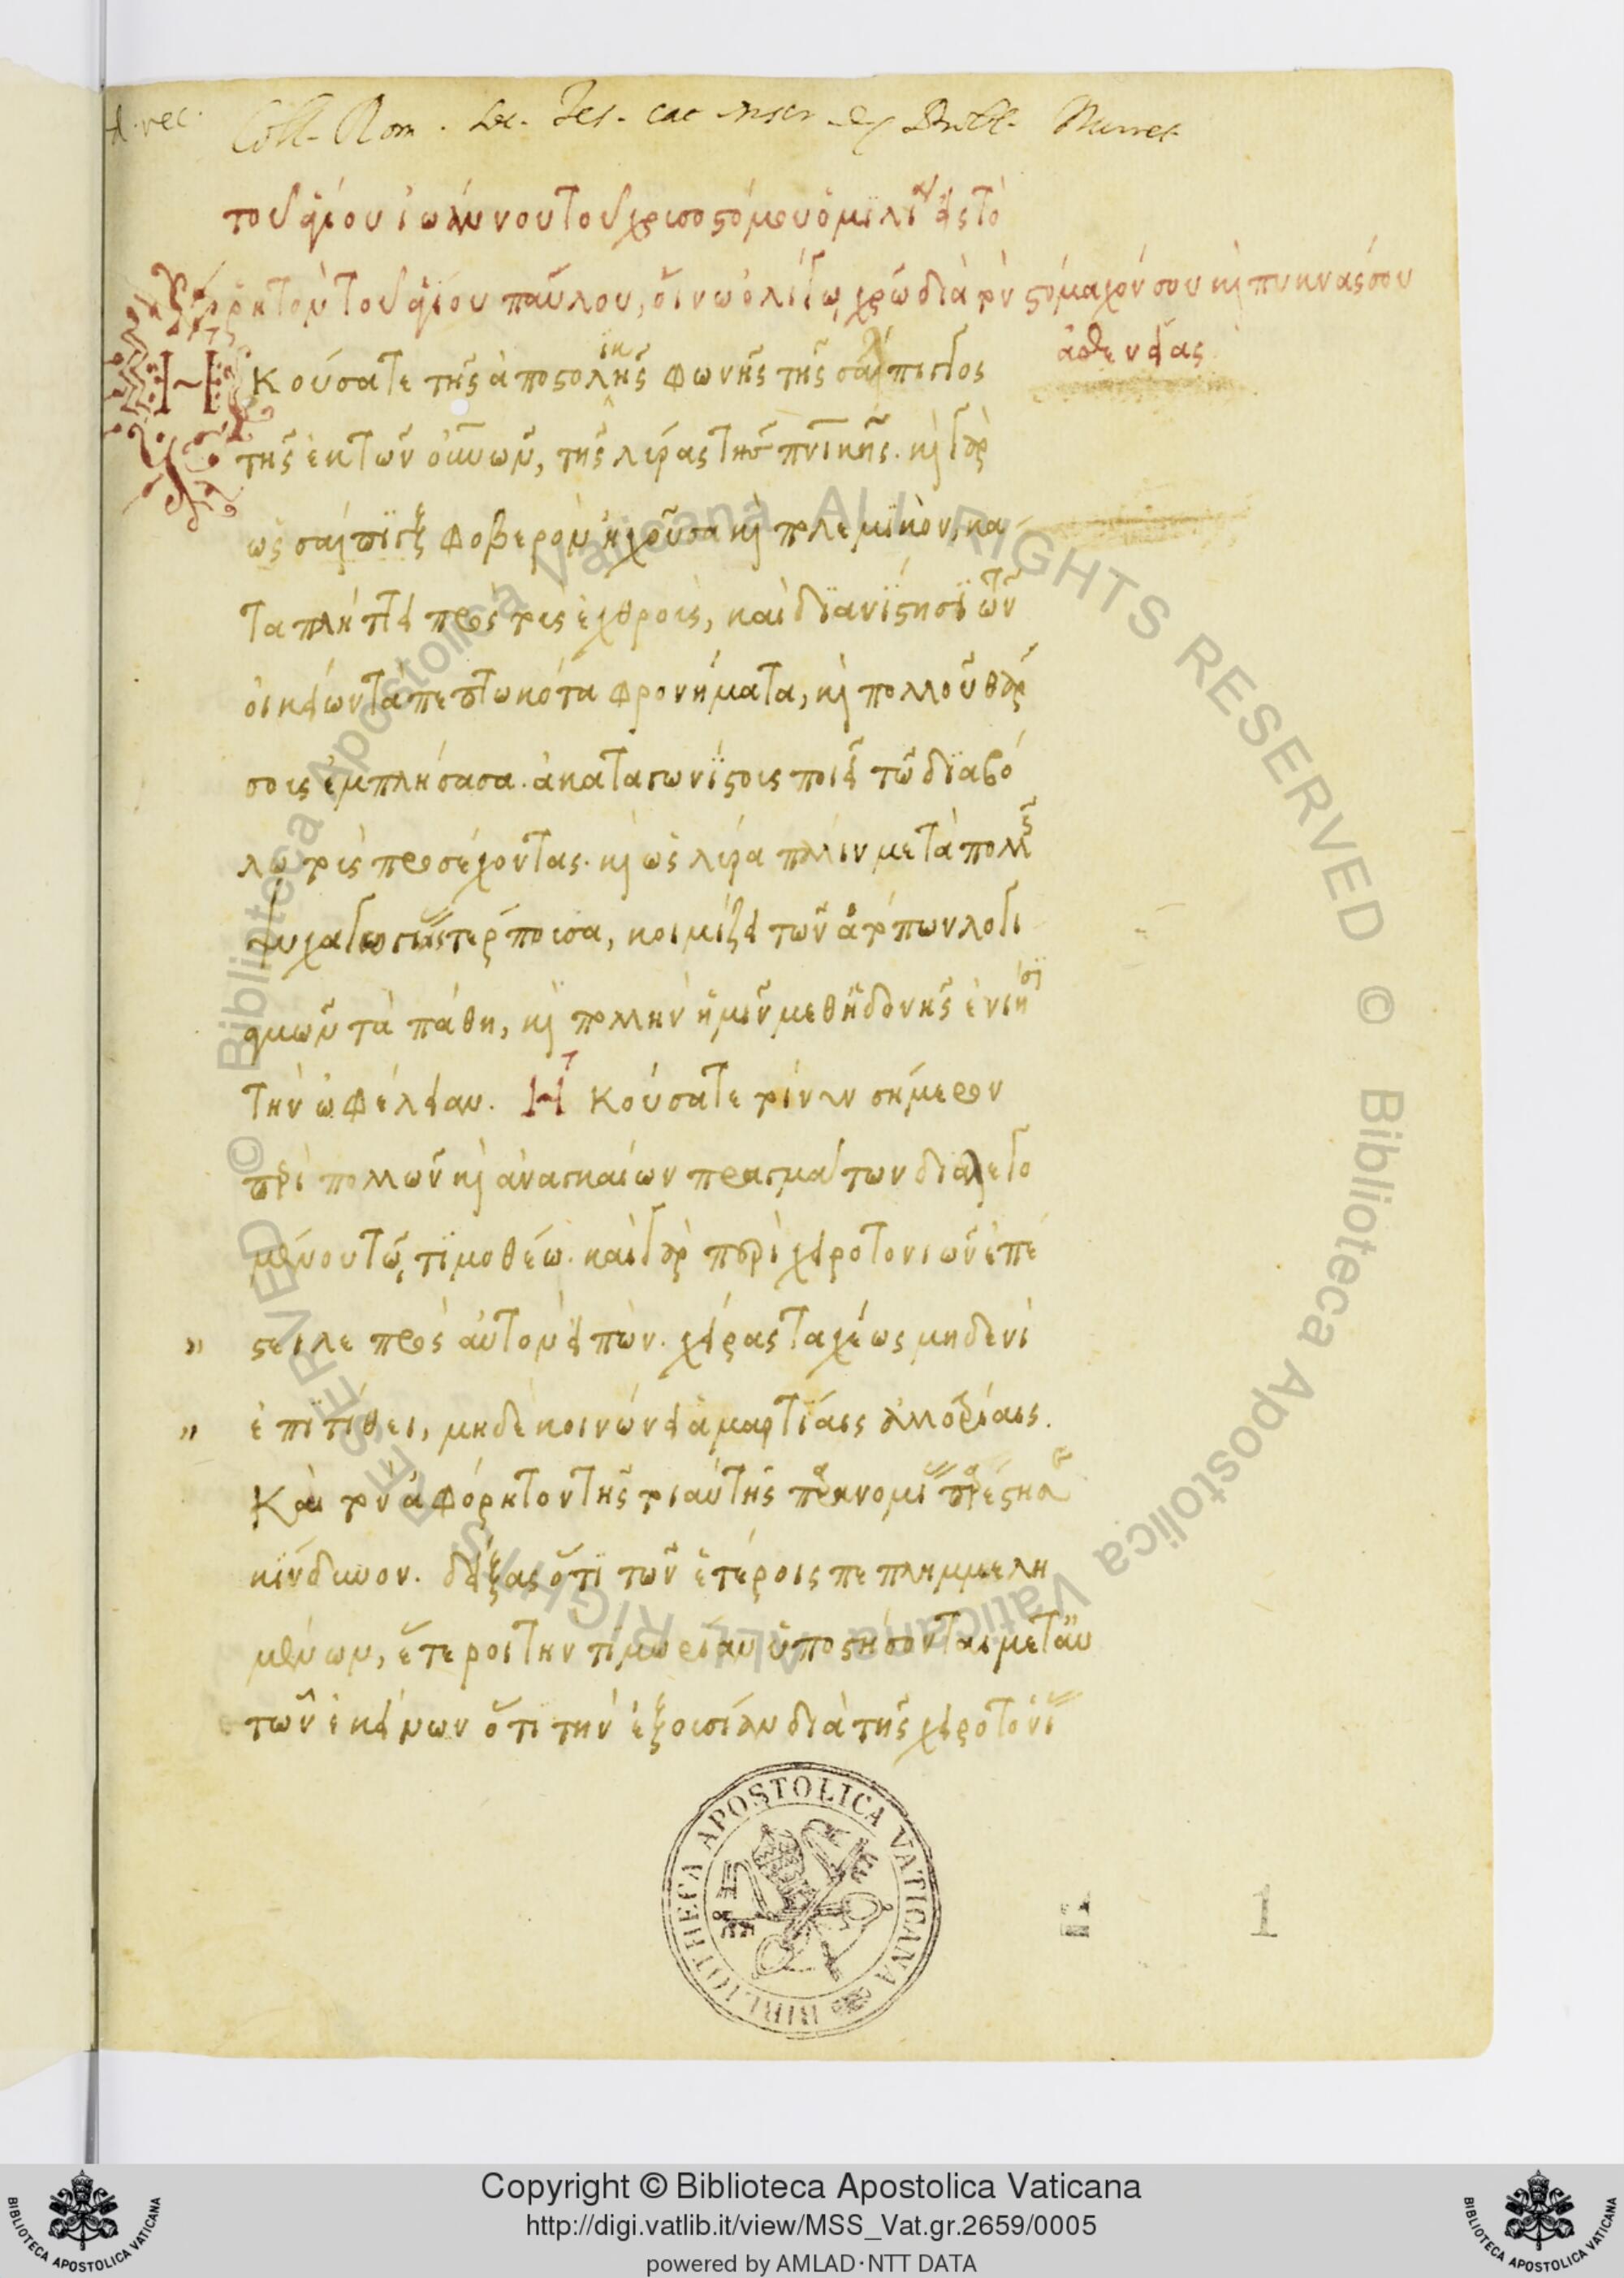 Coll. Rom. Soc. Jes. cat. Mscr. ex Bibl. Muret
τοῦ ἁγίου ἰωάννου τοῦ χρισοστόμου ὁμιλία εἰς τὸ
ῥητὸν τοῦ ἁγίου παύλου, οἴνω ὀλίγω χρῶ διὰ τὸν στόμαχόν σου κ πυκνάς σου
ἀσθενείας
Ηκούσατε τῆς ἀποστολικῆς φωνῆς τῆς σάλπιγγος
τῆς ἐκ τῶν οὐνῶν, τῆς λύρας τῆς πνικῆς. κ γὰρ
ὡς σάλπιγξ φοβερὸν ἠχοῦσα κ πολεμικὸν, κα
ταπλήττει πρὸς τοὺς ἐχθροὺς, καὶ διανίστησι τῶν
οἰκείων τὰ πεπτωκότα φρονήματα, κ πολλοῦ θάρ
σους ἐμπλήσασα. ἀκαταγωνίστους ποιεῖ τῶ διαβό
λω τοὺς προσέχοντας. κ ὡς λύρα πάλιν μετὰ πολλῆς
ψυχαγωγίας τέρπουσα, κοιμίζει τῶν ἀτόπων λογι
σμῶν τὰ πάθη, κ πολλὴν ἡμῖν μεθ ἡδονῆς ἐνίησι
τὴν ὠφέλειαν. Ἠκούσατε τοίνυν σήμερον
περὶ πολλῶν κ ἀναγκαίων πραγμάτων διαλεγο
μένου τῶ τιμοθέω. καὶ γὰρ περὶ χειροτονιῶν ἐπέ
στειλε πρὸς αὐτὸν εἰπών. χεῖρας ταχέως μηδενὶ
ἐπιτίθει, μηδὲ κοινώνει ἁμαρτίαις ἀλλοτρίαις.
Καὶ τὸν ἀφόρητον τῆς τοιαύτης παρανομίας παρέστησε
κίνδυνον. δείξας ὅτι τῶν ἑτέροις πεπλημμελη
μένων, ἕτεροι τὴν τιμωρίαν ὑποστήσονται μετ αὐ
τῶν ἐκείνων ὅτι τὴν ἐξουσίαν διὰ τῆς χειροτονί
BIBLIOTHECA APOSTOLICA VATICANA
1
© Biblioteca Apostolica Vaticana ALL RIGHTS RESERVED © Biblioteca Apostolica Vaticana ALL RIGHTS RESERVED
BIBLIOTECA APOSTOLICA VATICANA
Copyright © Biblioteca Apostolica Vaticana
http://digi.vatlib.it/view/MSS_Vat.gr.2659/0005
powered by AMLAD·NTT DATA
BIBLIOTECA APOSTOLICA VATICANA